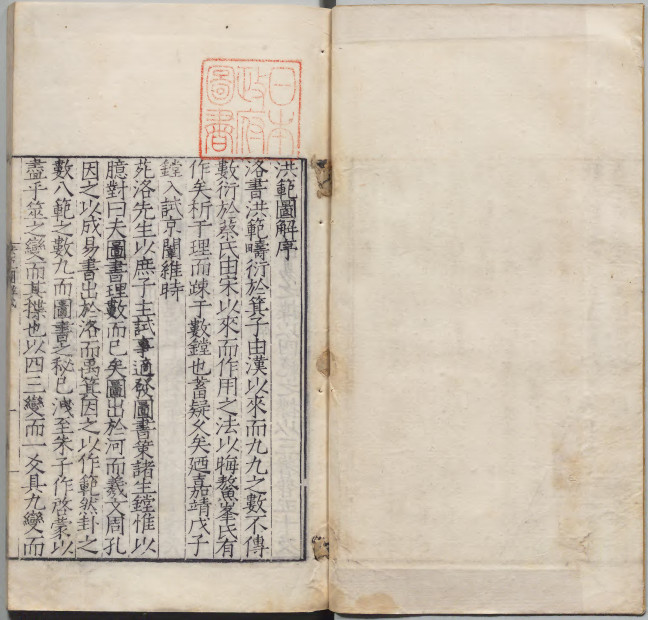 日本
政府
圖書
洪範圖解序
洛書洪範疇衍於箕子由漢以來而九九之數不傳
數衍於蔡氏由宋以來而作用之法以晦鰲峯氏有
作矣析于理而疎于數鏜也蓄疑久矣廼嘉靖戊子
鏜入試京闈維時
苑洛先生以庶子主試事適發圖書策諸生鏜惟以
臆對曰夫圖書理數而已矣圖出於河而羲文周孔
因之以成易書出於洛而禹箕因之以作範然卦之
數八範之數九而圖書之秘已洩至朱子作啓蒙以
盡乎筮之變而其揲也以四三變而一爻具九變而